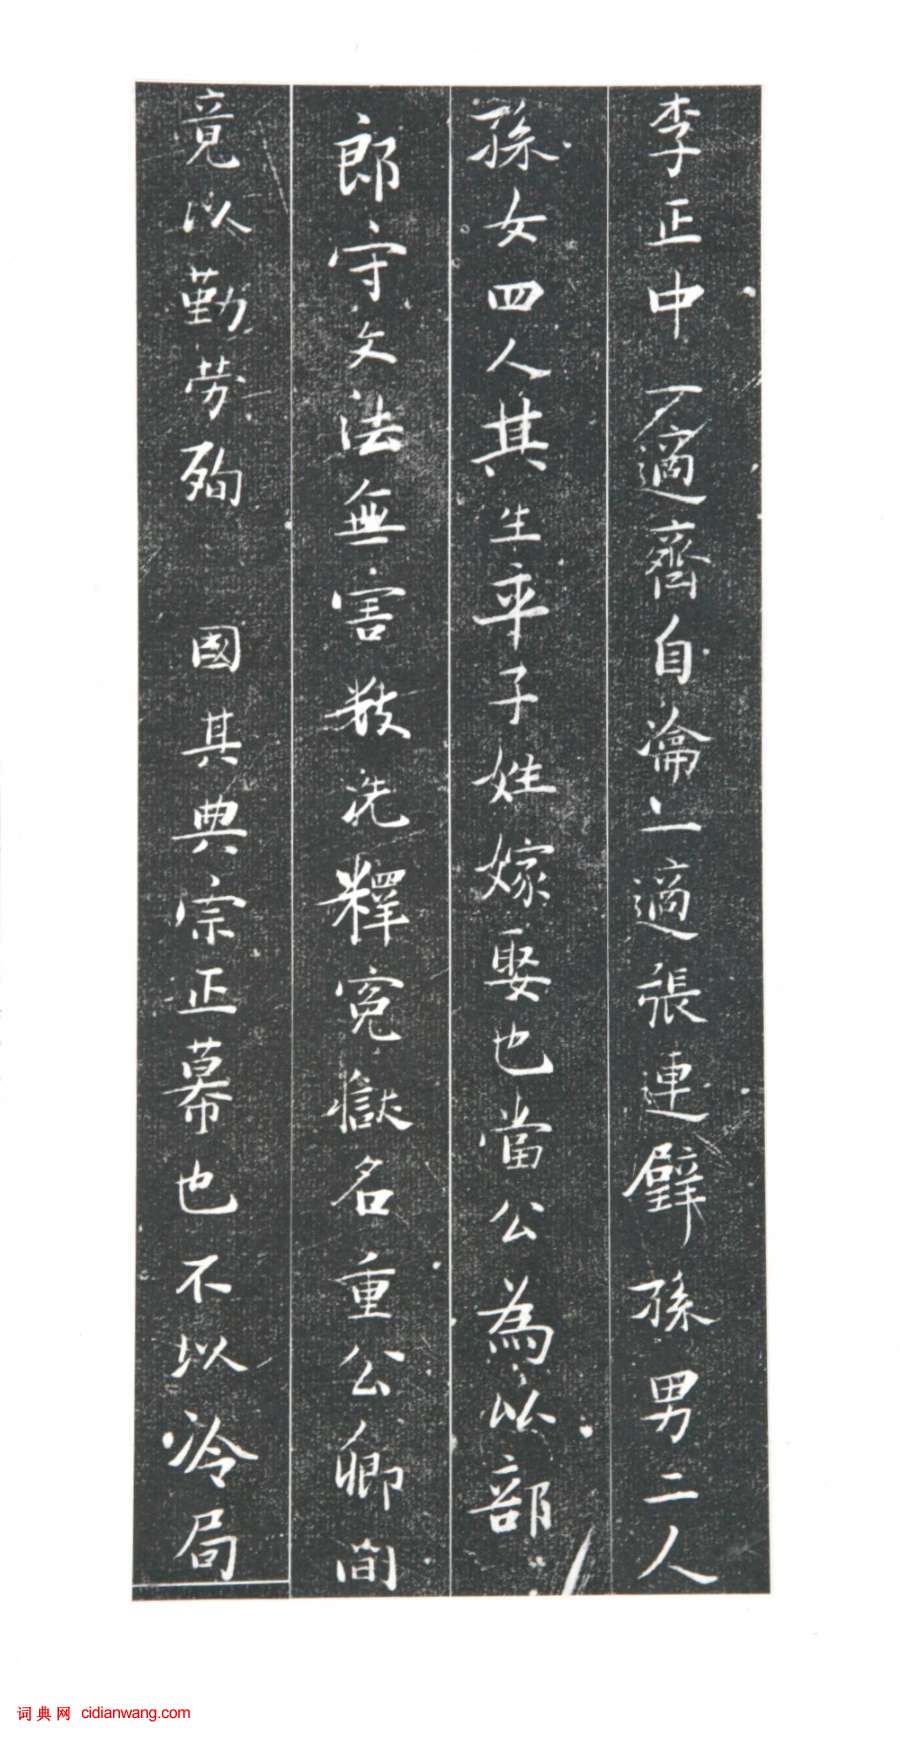 李正中一適齊自瀹一適張連璧孫男二人
孫女四人其生卒子姓嫁娶也當公為比部
郎守文法無害數洗釋冤獄名重公卿間
竟以勤勞殉 國其典宗正幕也不以冷局
词典网 cidianwang.com